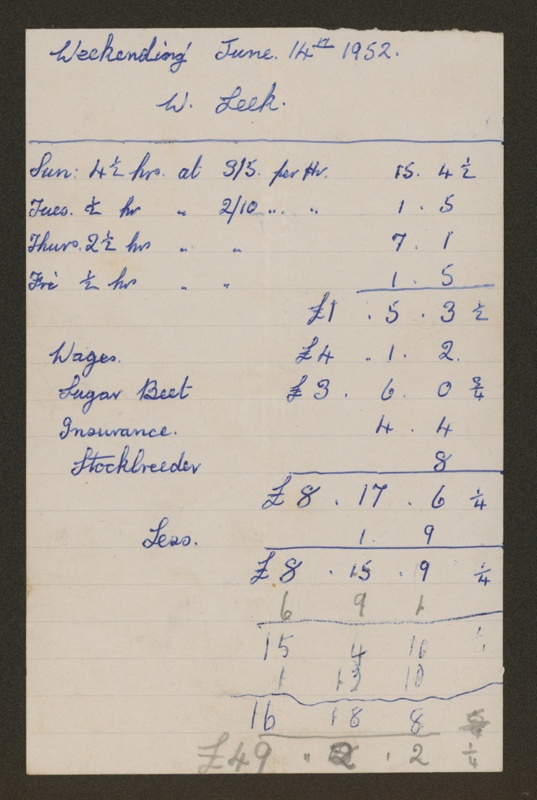 Weekending June. 14th 1952.
W. Leek.
Sun: 4½ hrs. at 3/5. per Hr. 15. 4½
Tues. ½ hr " 2/10 " " 1. 5
Thurs. 2½ hrs " " 7. 1
Fri ½ hr " " 1. 5
£1. 5. 3½
Wages. £4. 1. 2.
Sugar Beet £3. 6. 0¾
Insurance. 4. 4
Stockbreeder 8
£8. 17. 6¼
Less. 1. 9
£8. 15. 9¼
6 9 1
15 4 10
1 13 10
16 18 8
£49 " 2. 2 ¼